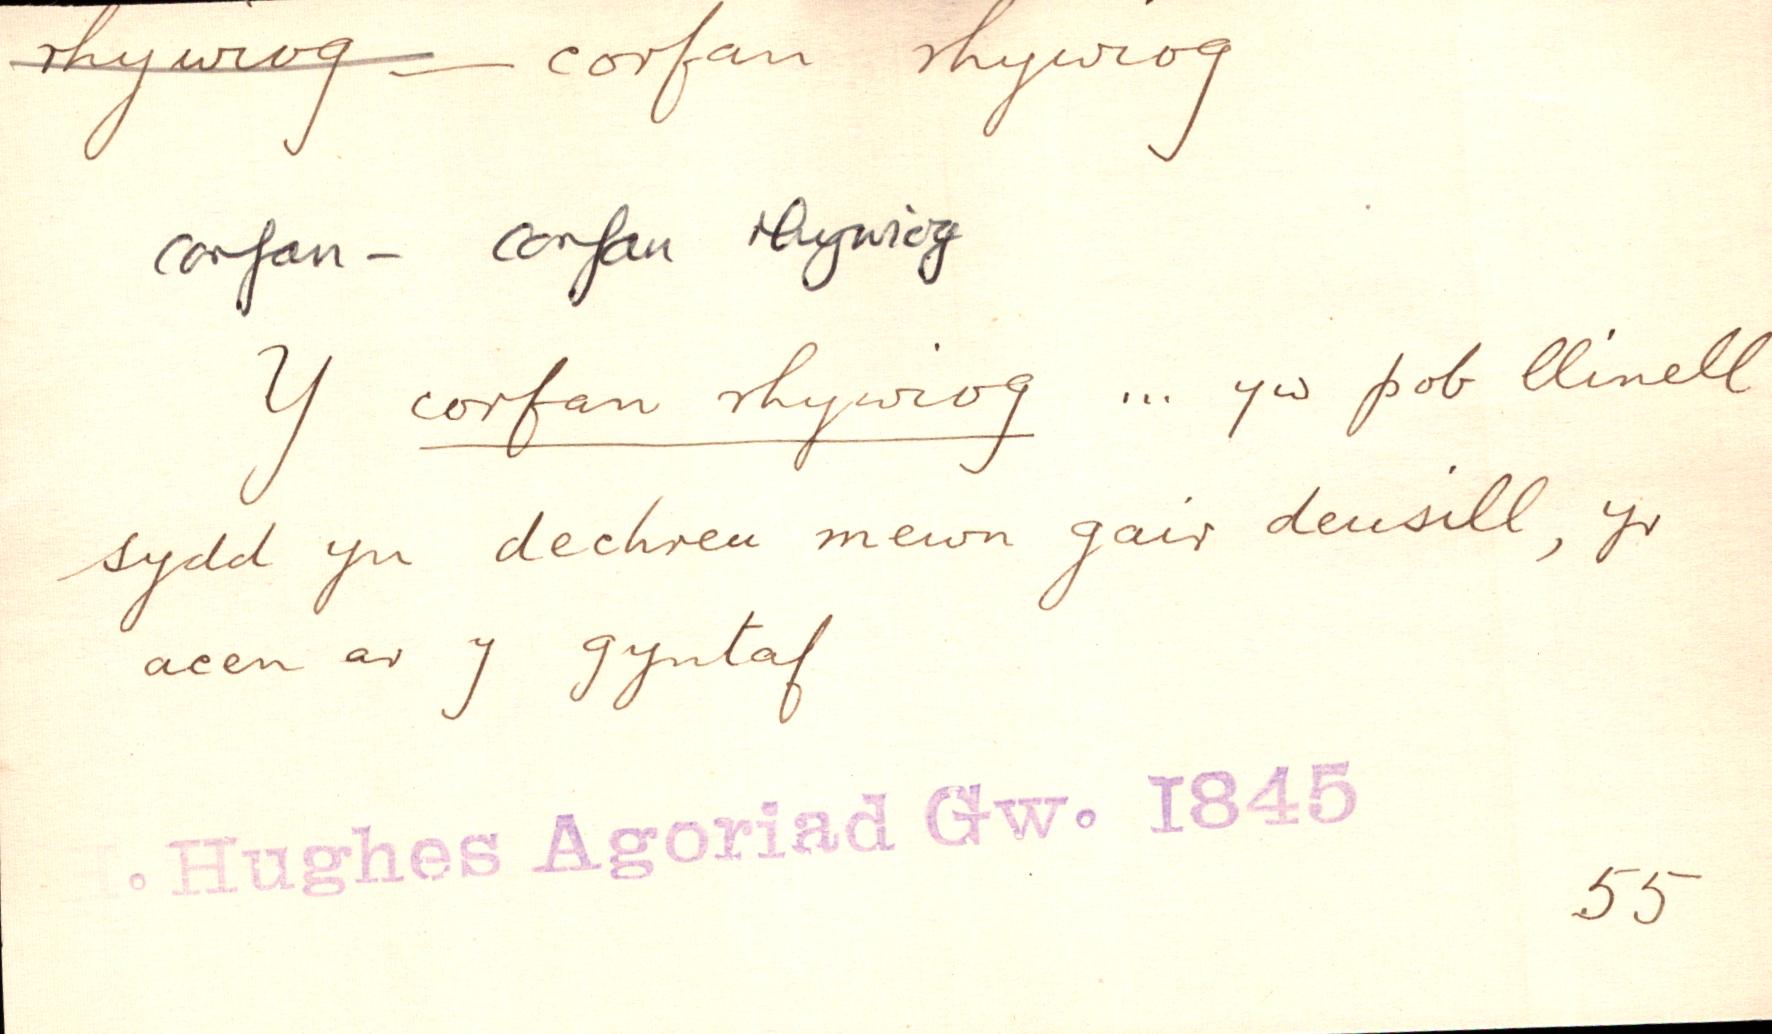 rhywiog — corfan rhywiog
corfan - corfan rhywiog
Y corfan rhywiog ... yw pob llinell
sydd yn dechreu mewn gair deusill, yr
acen ar y gyntaf
H. Hughes Agoriad Gw. 1845
55